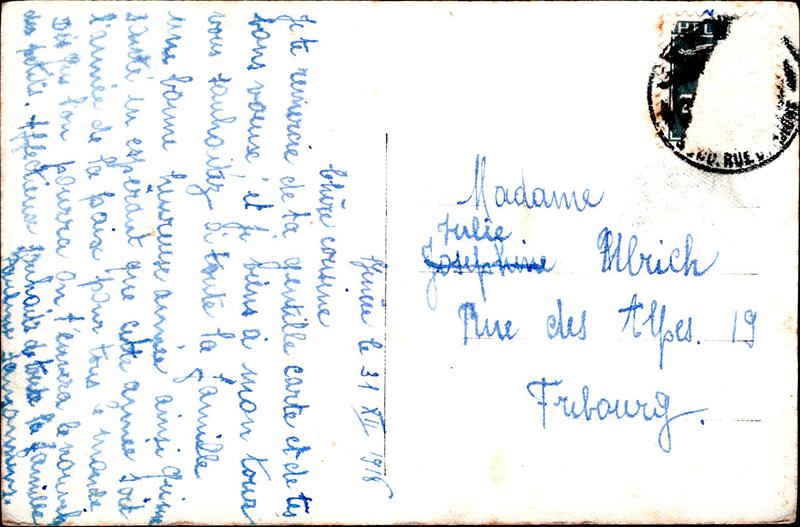 Genève le 31 XII 1918
Chère cousine
Je te remercie de ta gentille carte et de tes
bons vœux et je viens à mon tour
vous souhaiter à toute la famille
une bonne heureuse année ainsi qu'une
santé en espérant que cette année soit
l'année de la paix pour tous le monde
Dès que l'on pourra on t'enverra le
des petits. Affectueux souhaits de toute la famille
Madame
Julie
Josephine Ulrich
Rue des Alpes. 19
Fribourg.
RUE